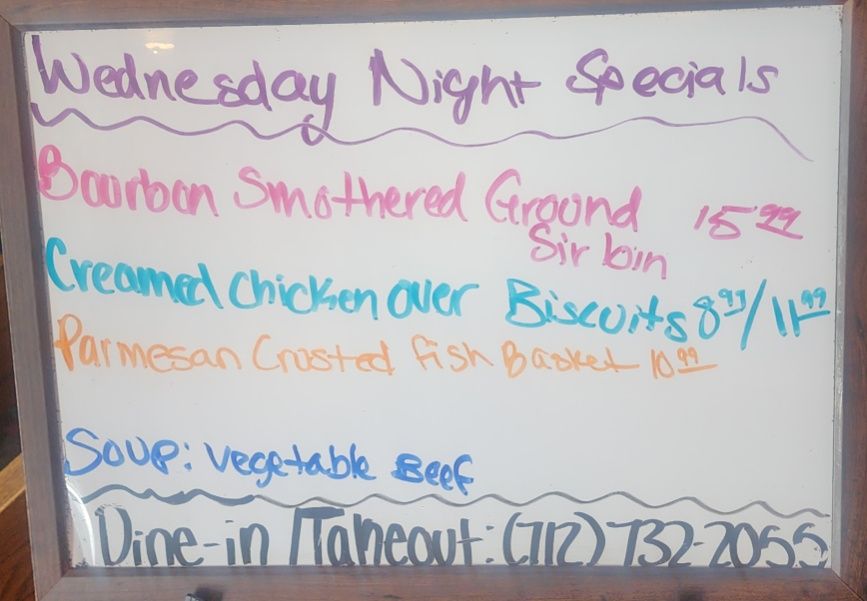 Wednesday Night Specials
Bourbon Smothered Ground 15.99
Sirboin
Creamed Chicken over Biscuits 8.99/11.99
Parmesan Crusted Fish Basket 10.99
Soup: Vegetable Beef
Dine-in/Takeout: (712) 732-2055